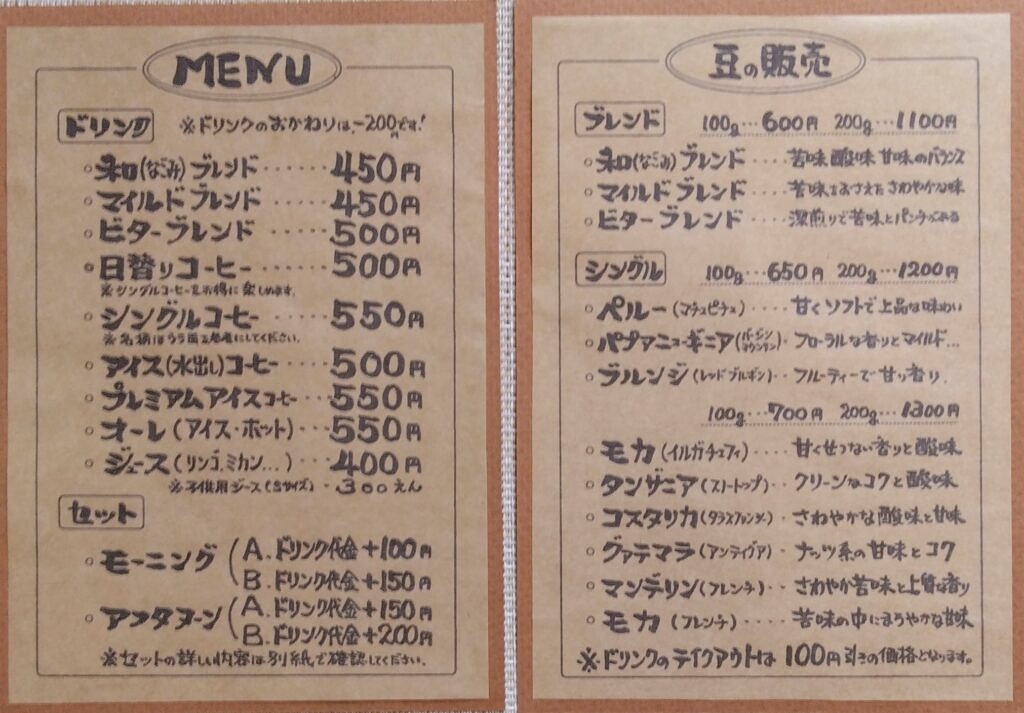 MENU
ドリンク ※ドリンクのおかわりは、-200円です!
○和(なごみ)ブレンド・・・・・・450円
○マイルドブレンド 450円
○ビターブレンド・・・・・500円
○日替りコーヒー・・・・・・500円
※シングルコーヒーをお得に楽しめます。
○シングルコーヒー・・・・・550円
※名柄はうら面を参考にしてください。
○アイス(水出し)コーヒー・・・500円
○プレミアムアイスコーヒー・・・550円
○オーレ(アイス・ホット)・・・・550円
○ジュース(リンゴ、ミカン…)・・・400円
※子供用ジュース(Sサイズ)・300えん
セット
○モーニング(A. ドリンク代金+100円
B. ドリンク代金+150円
○アフタヌーン(A. ドリンク代金+150円
B. ドリンク代金+200円
※セットの詳しい内容は別紙で確認してください。
豆の販売
ブレンド 100g…600円 200g…1100円
○和(なごみ)ブレンド・・・・苦味 酸味 甘味のバランス
○マイルドブレンド・・・・苦味をおさえたさわやかな味
○ビターブレンド・・・・深煎りで苦味とパンチがある
シングル 100g…650円 200g…1200円
○ペルー(マチュピチュ)・・・・甘くソフトで上品な味わい
○パプアニューギニア(バージンマウンテン)・フローラルな香りとマイルド…
○ブルンジ(レッドブルボン)・フルーティーで甘い香り.
100g…700円 200g…1300円
○モカ(イルガチェフィ)・・・・甘くせつない香りと酸味
○タンザニア(スノートップ)・・クリーンなコクと酸味
○コスタリカ(タラス)・・さわやかな酸味と甘味
○グァテマラ(アンティグア)・ナッツ系の甘味とコク
○マンデリン(フレンチ)・・さわやか苦味と上質な香り
○モカ(フレンチ)・・・・苦味の中にまろやかな甘味
※ドリンクのテイクアウトは100円引きの価格となります。